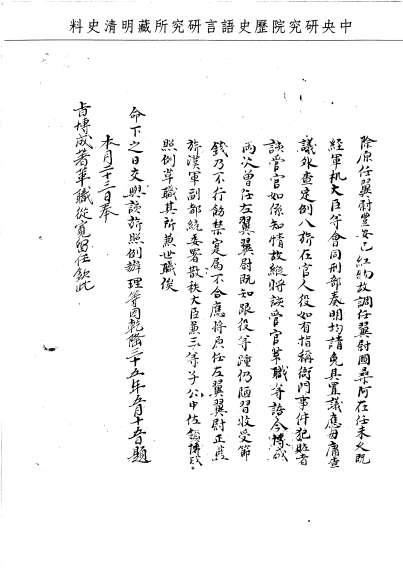 中央研究院歷史語言研究所藏明清史料
除原任翼尉豐安已紅約故調任翼尉圖桑阿在任未久既
經軍机大臣等會同刑部奏明均請免其置議應毋庸查
議外查定例八旂在官人役如有指稱衙門事件犯贓者
該管官如係知情故縱將該管官革職等語今博成
兩次曾任左翼翼尉既知跟役等踵仍陋習收受節
錢乃不行飭禁定屬不合應將原任左翼翼尉正藍
旂漢軍副都統委署散秩大臣兼三等子公中佐領博成
照例革職其所兼世職俟
命下之日交與該旂照例辦理等因乾隆三十五年五月十五日題
本月二十三日奉
旨博成著革職從寬留任欽此